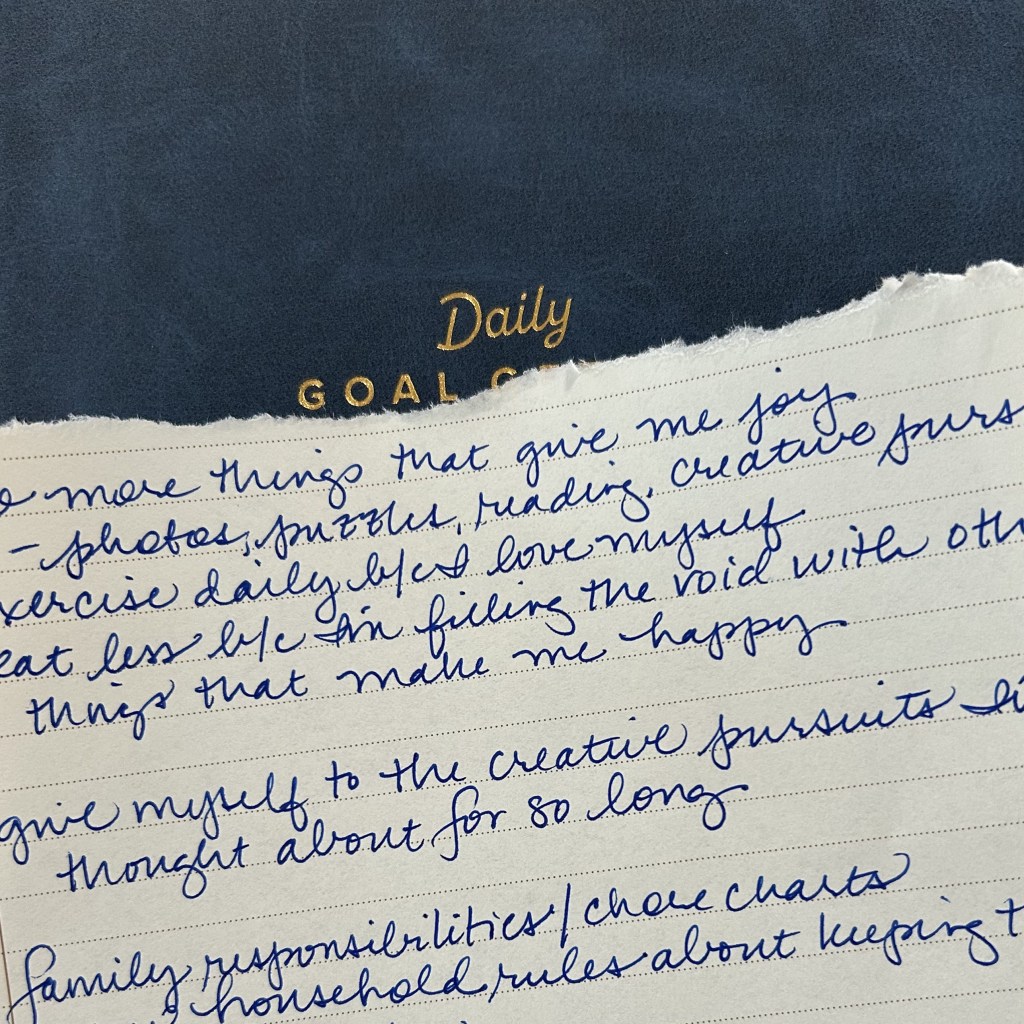 Daily
GOAL
more things that give me joy
- photos, puzzles, reading, creative purs
xercise daily b/c I love myself
eat less b/c I'm filling the void with oth
things that make me happy
give myself to the creative pursuits I
thought about for so long
family responsibilities/chore charts
household rules about keeping t